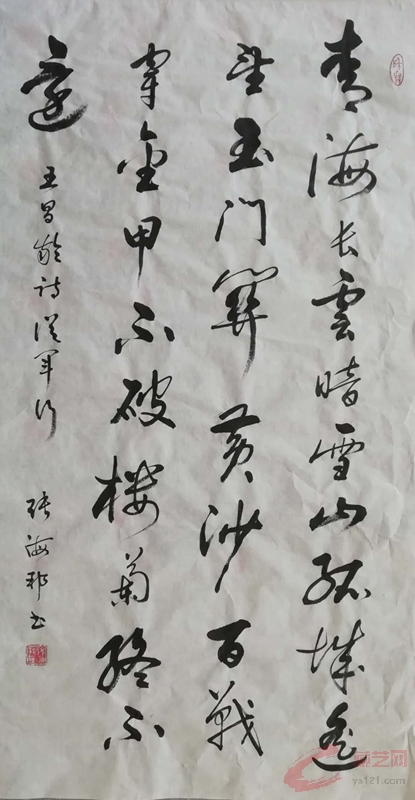 青海长雲暗雪山孤城遥
望玉门關黄沙百戰
穿金甲不破楼蘭终不
還
王昌龄诗从军行
张海邦书
艺网
ys121.com